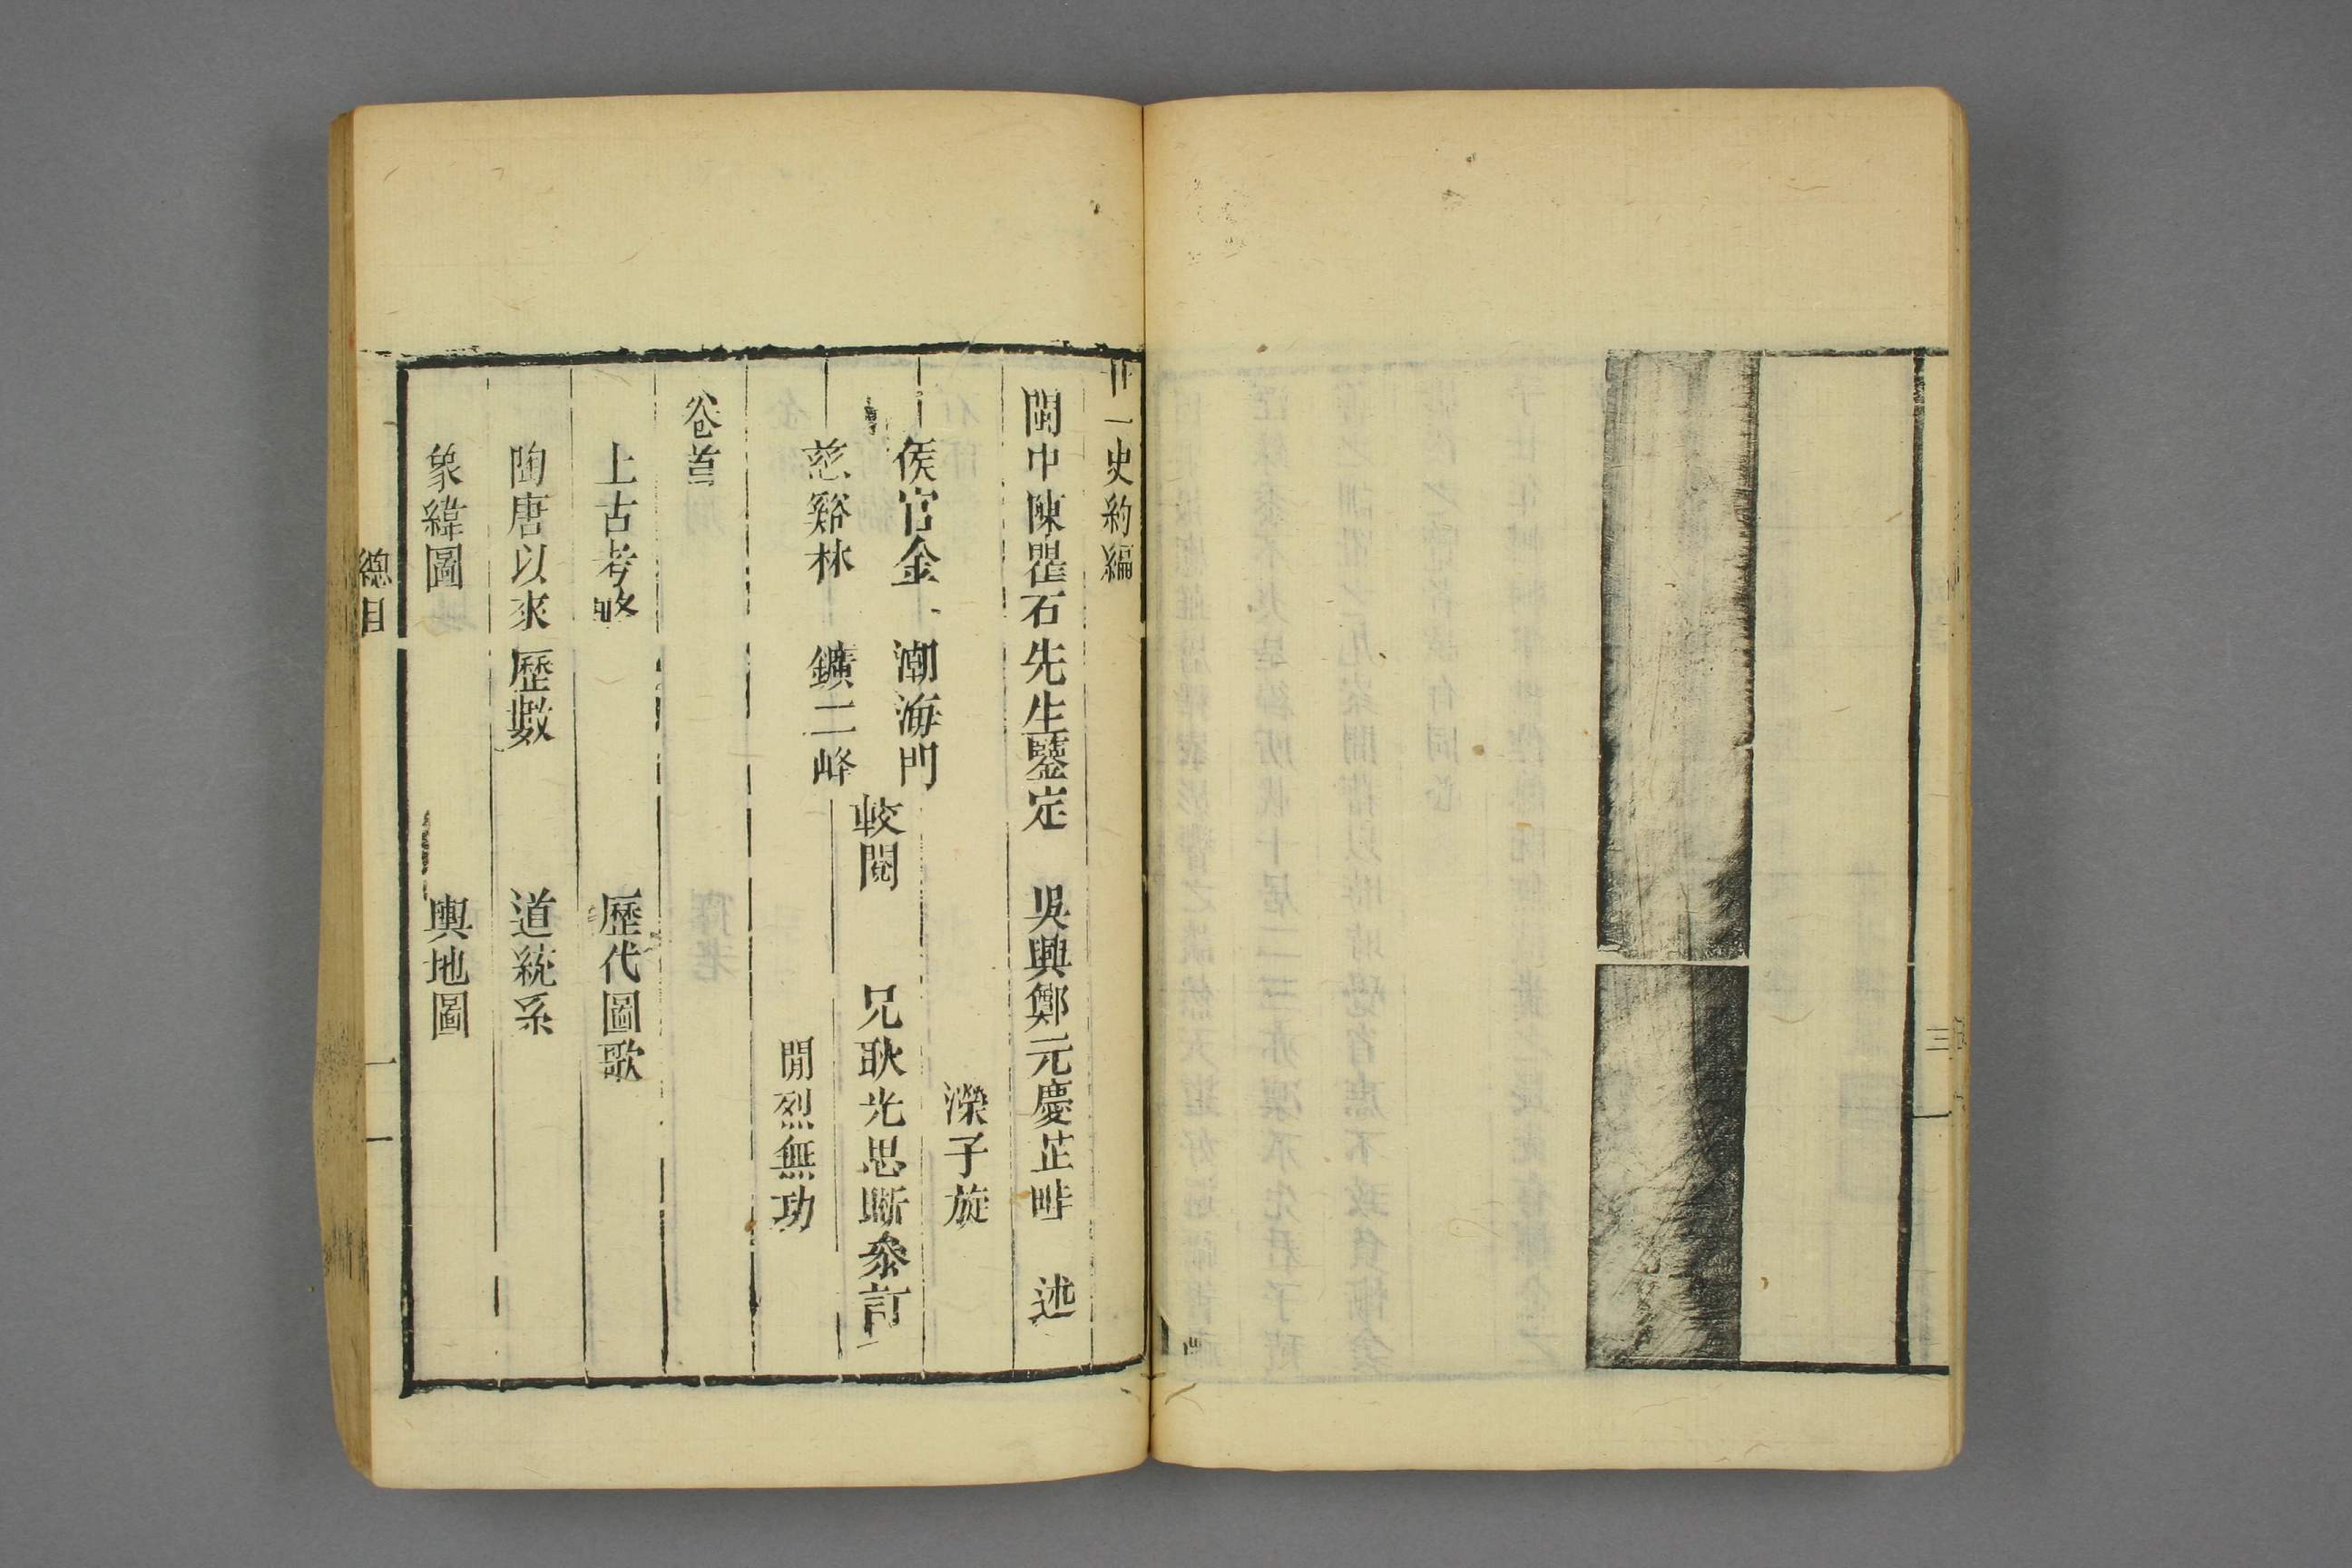 三
廿一史約編
閩中陳瞿石先生鑒定 吳興鄭元慶芷畦 述
濚子旋
侯官金 潮海門
較閱 兄耿光思晣叅訂
慈谿林 鑛二峰
開烈無功
卷首
上古考畧 歷代圖歌
陶唐以來歷數 道統系
象緯圖 輿地圖
總目 一